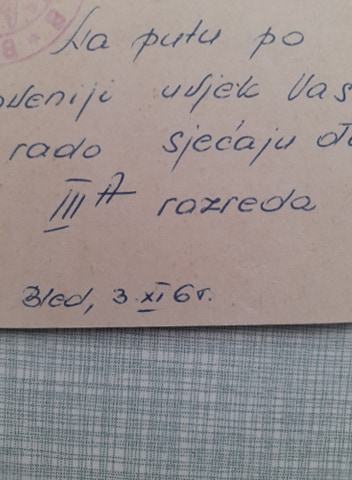 Na putu po
oveniji uvjek Vas
rado sjećaju
III A razreda
Bled, 3. XI 65.